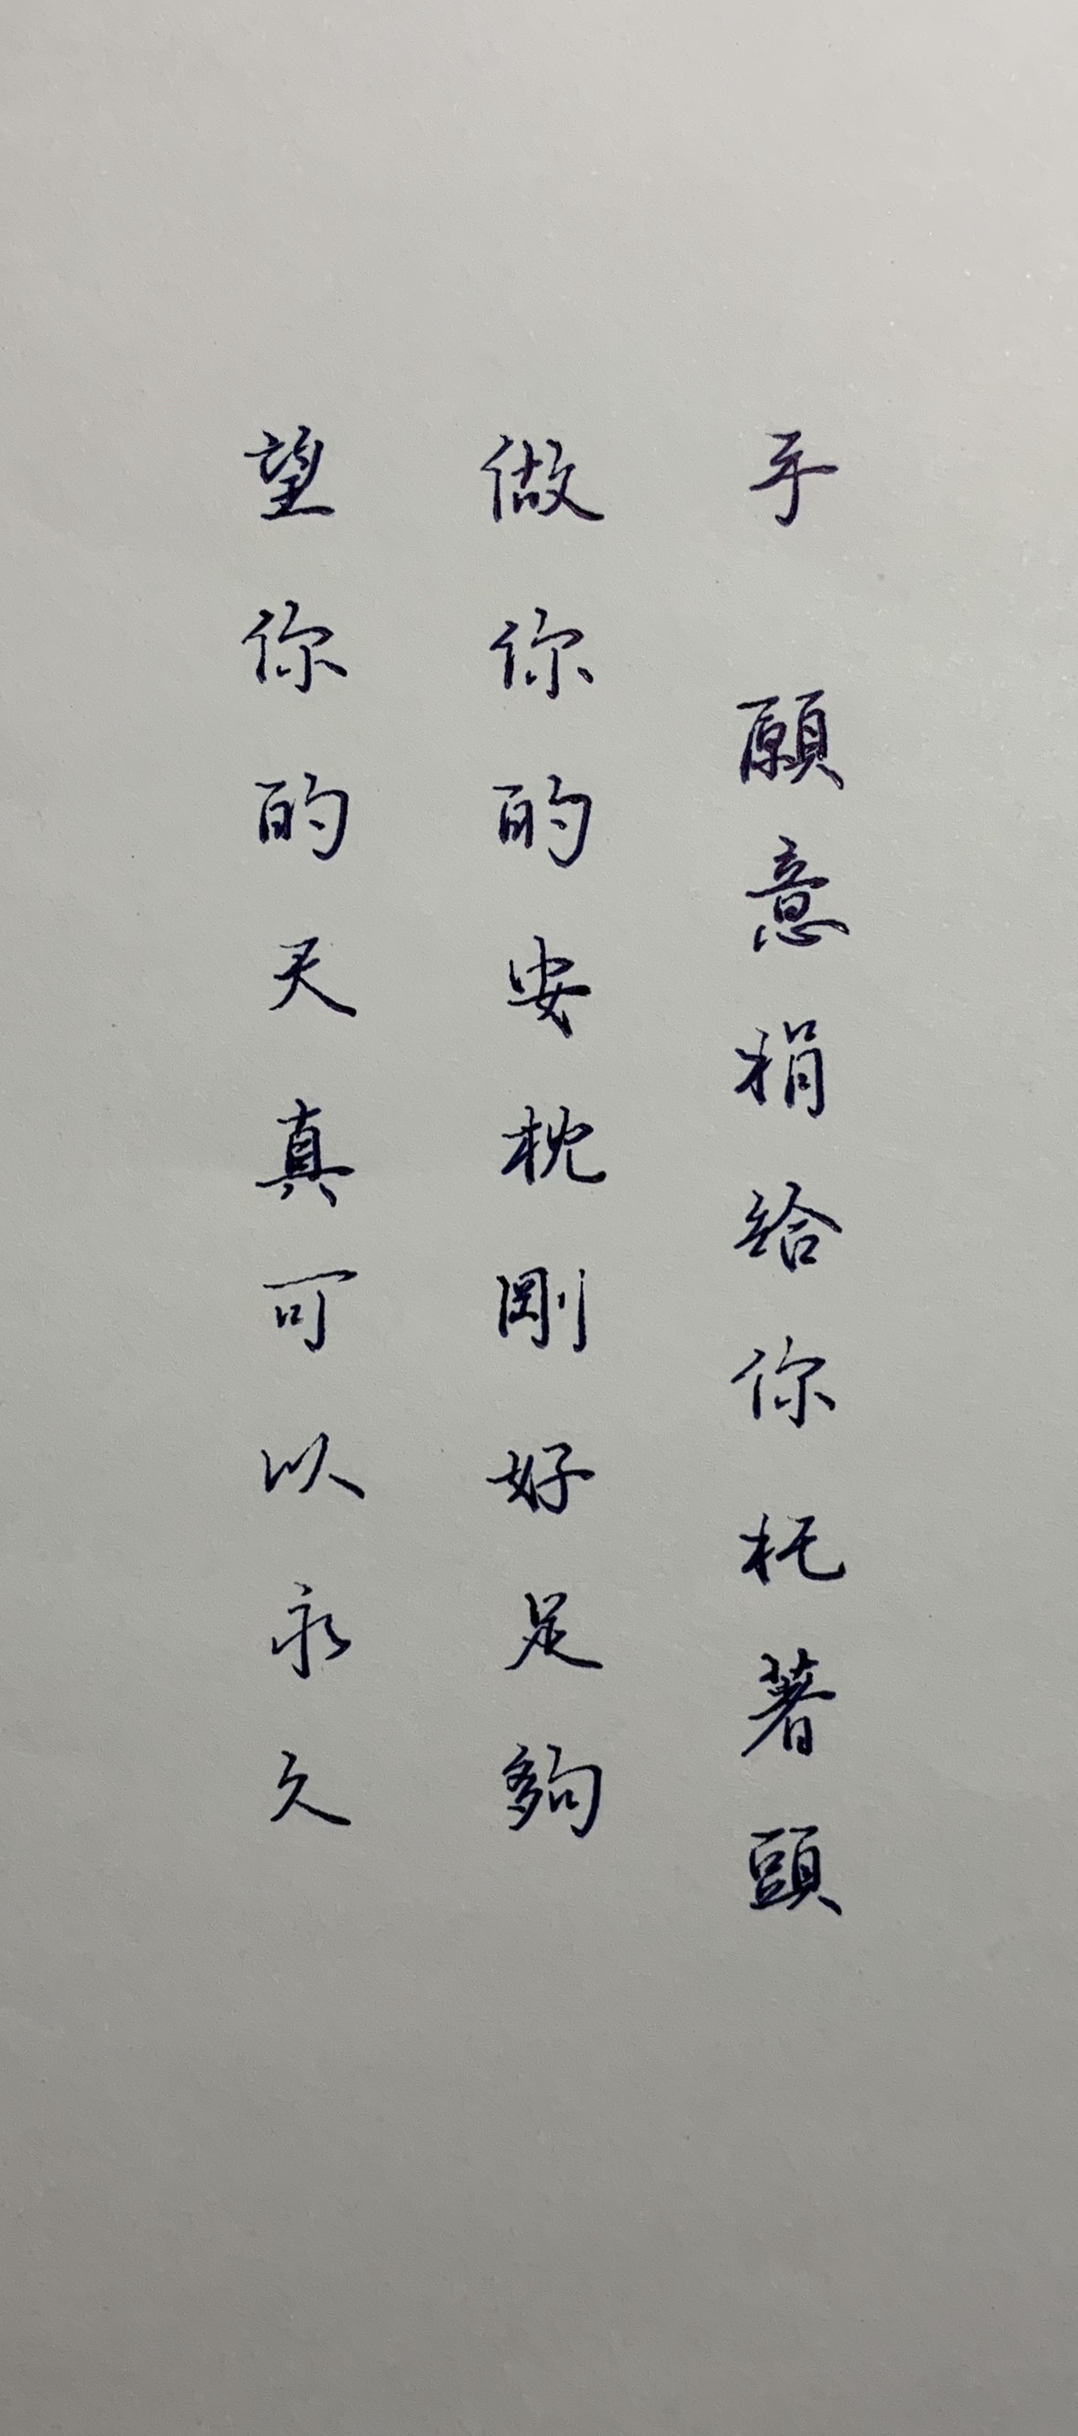 手 願意捐給你托著頭
做你的安枕剛好足夠
望你的天真可以永久